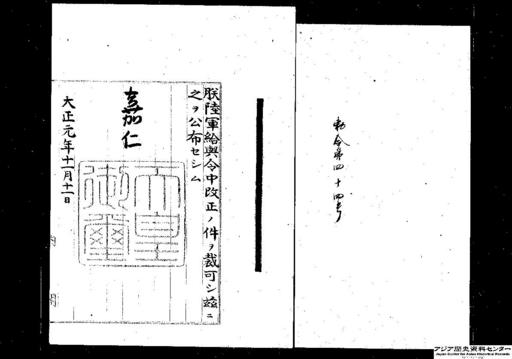 勅令第四十四号
朕陸軍給與令中改正ノ件ヲ裁可シ茲ニ
之ヲ公布セシム
嘉仁
大正元年十一月十一日
天皇御璽
内閣
アジア歴史資料センター
Japan Center for Asian Historical Records